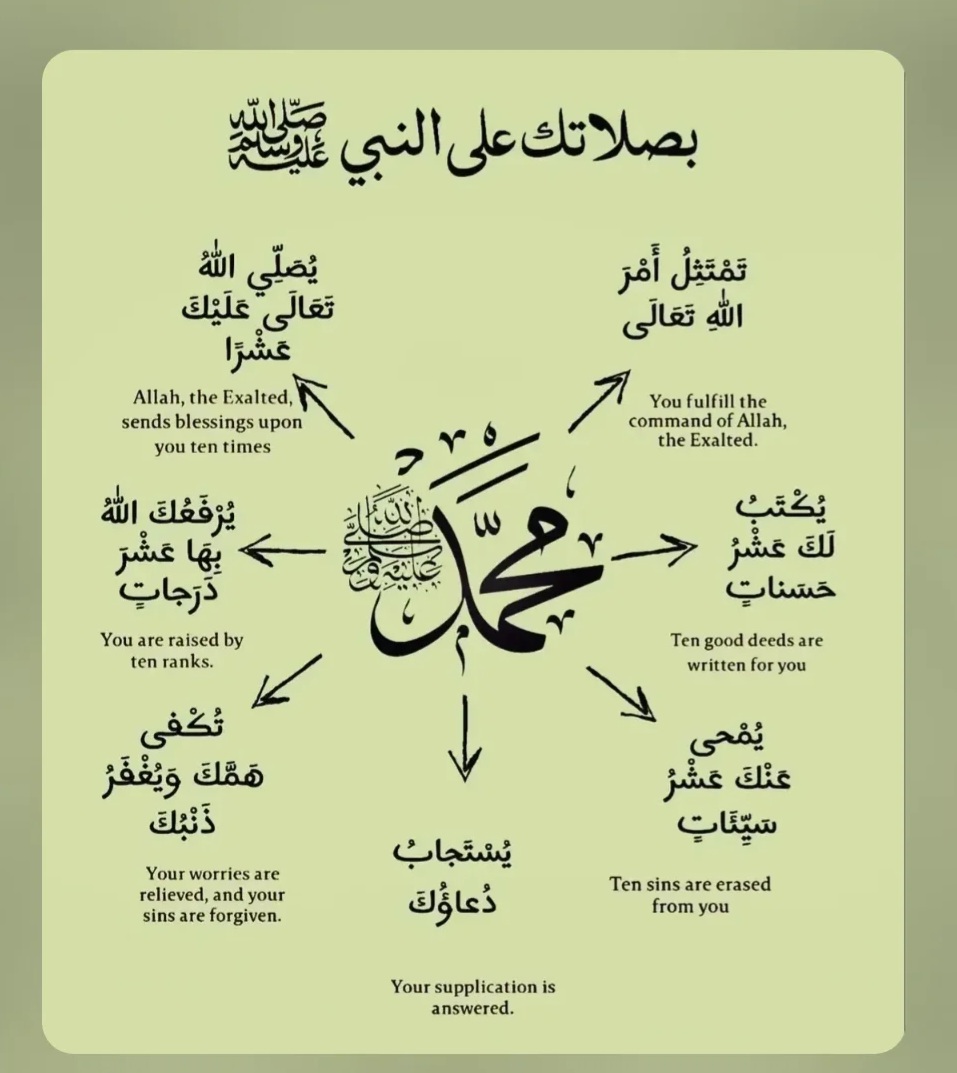 بصلاتك على النبي ﷺ
تَمْتَثِلُ أَمْرَ
اللهِ تَعَالَى
You fulfill the
command of Allah,
the Exalted.
يُصَلِّي اللهُ
تَعَالَى عَلَيْكَ
عَشْرًا
Allah, the Exalted,
sends blessings upon
you ten times
محمد ﷺ
يُكْتَبُ
لَكَ عَشْرُ
حَسَناتٍ
Ten good deeds are
written for you
يُرْفَعُكَ اللهُ
بِهَا عَشْرَ
دَرَجاتٍ
You are raised by
ten ranks.
يُمْحى
عَنْكَ عَشْرُ
سَيِّئَاتٍ
Ten sins are erased
from you
تُكْفى
هَمَّكَ وَيُغْفَرُ
ذَنْبُكَ
Your worries are
relieved, and your
sins are forgiven.
يُسْتَجابُ
دُعاؤُكَ
Your supplication is
answered.